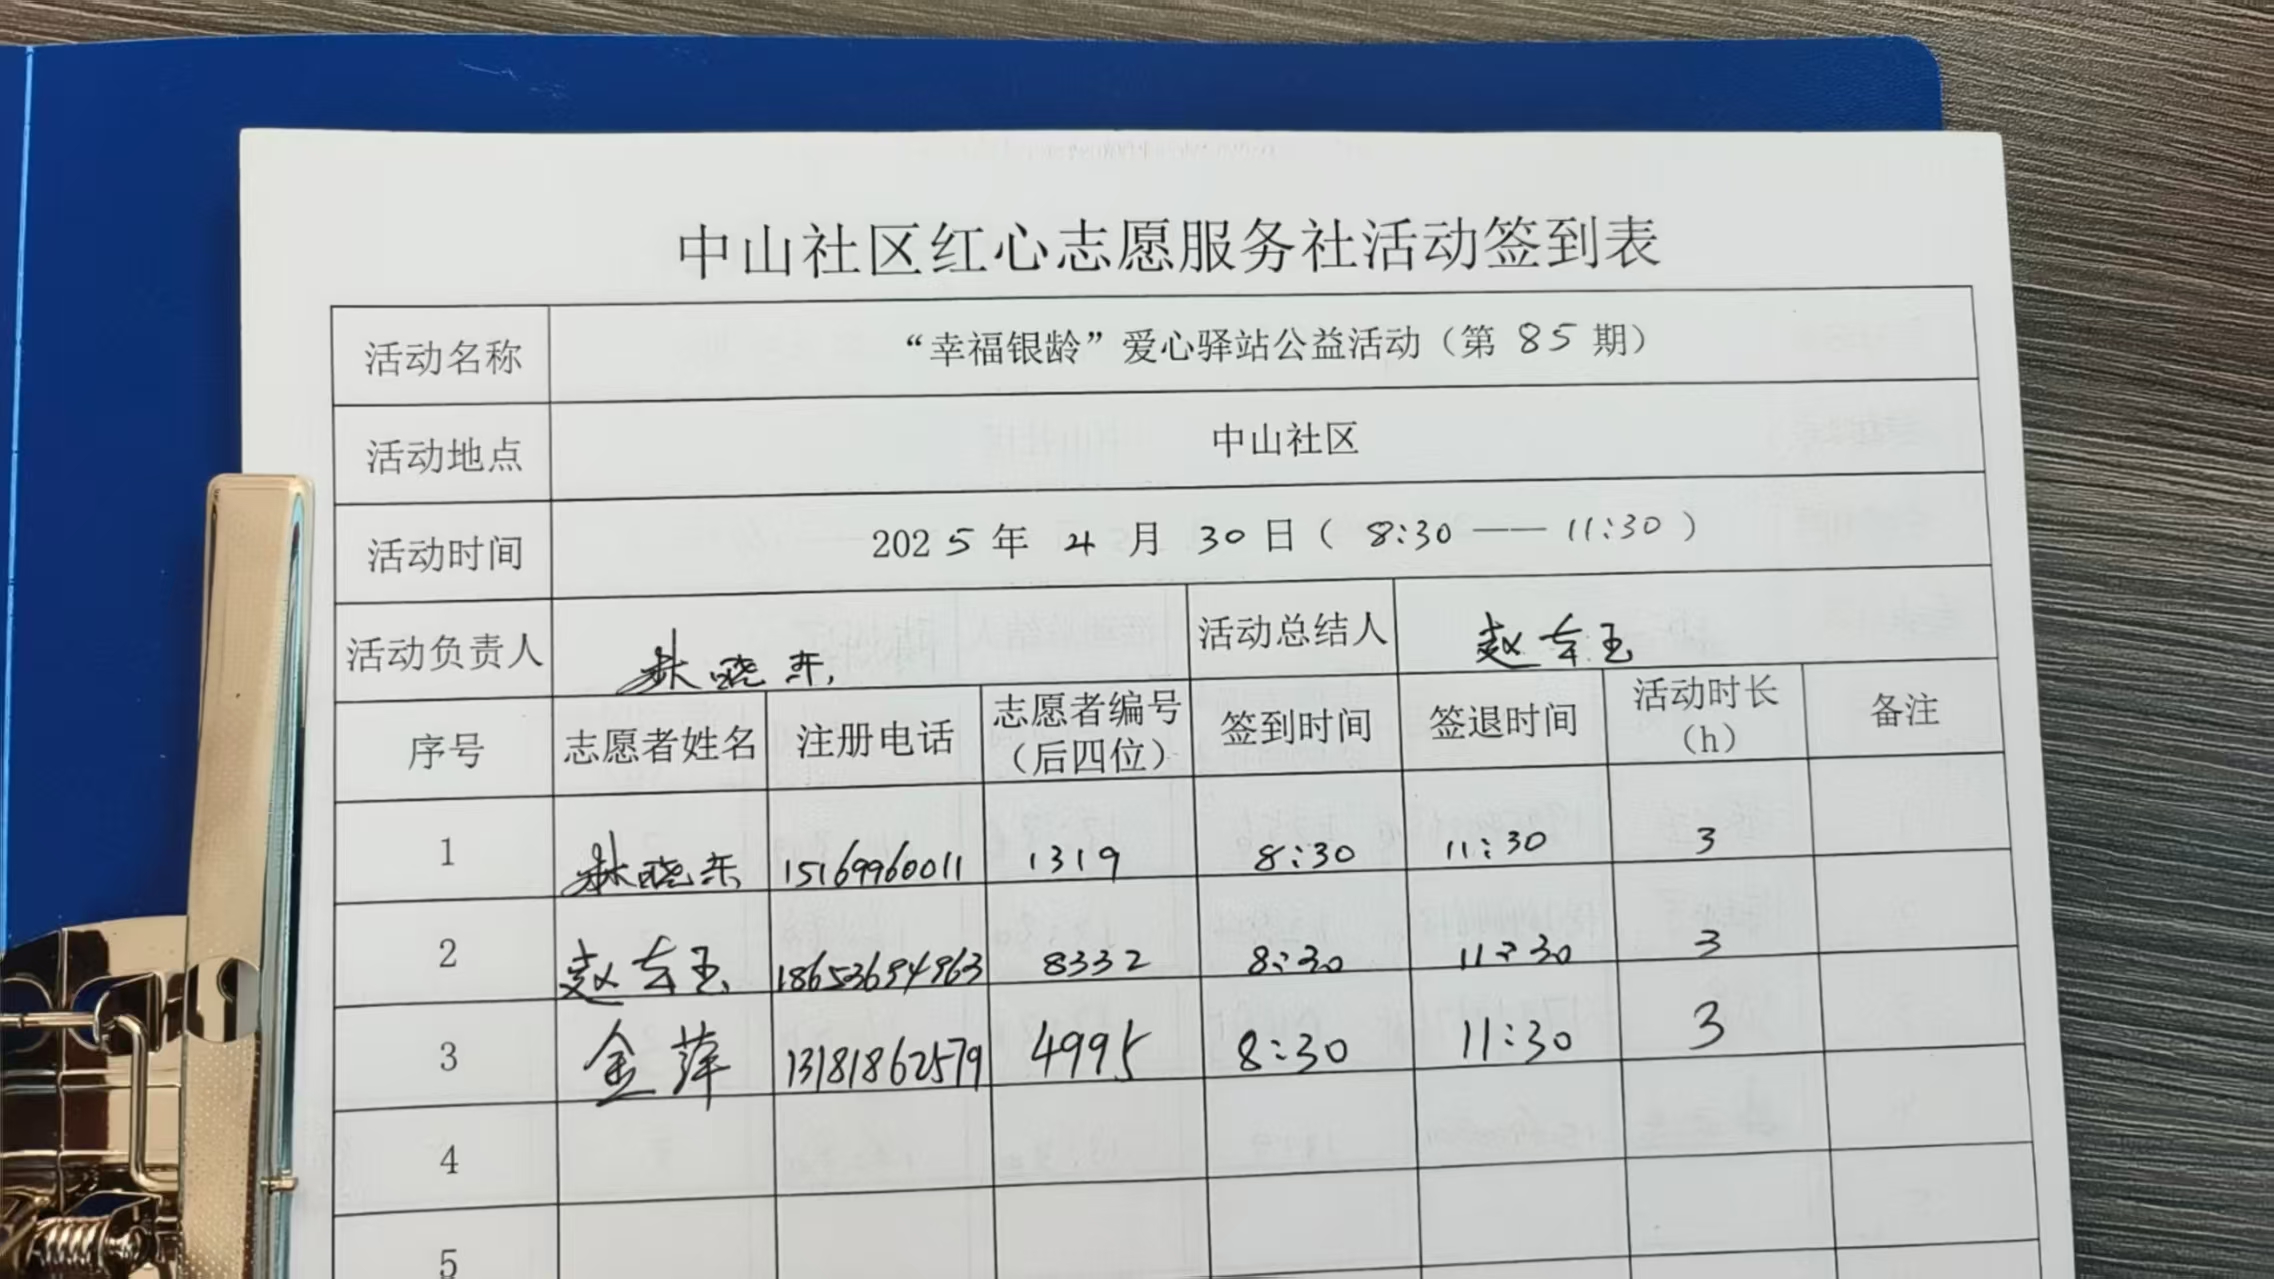 中山社区红心志愿服务社活动签到表
活动名称 “幸福银龄”爱心驿站公益活动（第 85 期）
活动地点 中山社区
活动时间 2025 年 4 月 30 日（ 8:30 —— 11:30 ）
活动负责人 林晓东 活动总结人 赵玉
序号 志愿者姓名 注册电话 志愿者编号（后四位） 签到时间 签退时间 活动时长（h） 备注
1 林晓东 15169960011 1319 8:30 11:30 3
2 赵玉 18653694963 8332 8:30 11:30 3
3 金萍 13181862579 4995 8:30 11:30 3
4
5